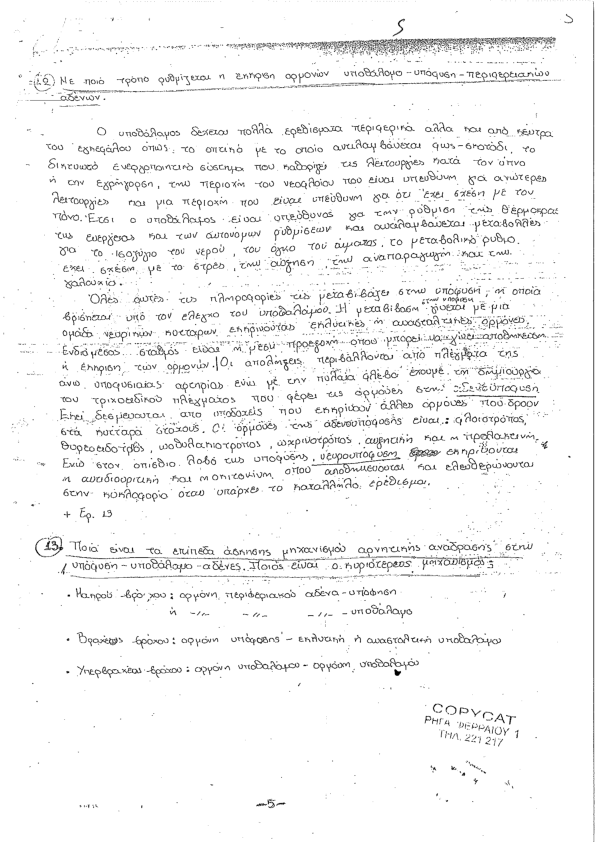 5
12. Με ποιό τρόπο ρυθμίζεται η έκκριση ορμονών υποθάλαμο-υπόφυση-περιφερειακών
αδένων.
Ο υποθάλαμος δέχεται πολλά ερεθίσματα περιφερικά αλλα και από κέντρα
του εγκεφάλου όπως: το οπτικό με το οποίο αντιλαμβάνεται φως-σκοτάδι, το
δικτυωτό ενεργοποιητικό σύστημα που καθορίζει τις λειτουργίες κατά τον ύπνο
ή την εγρήγορση, την περιοχή του νεοφλοιού που είναι υπεύθυνη για ανώτερες
λειτουργίες και μια περιοχή που είναι υπεύθυνη για ότι έχει σχέση με τον
πόνο. Έτσι ο υποθάλαμος είναι υπεύθυνος για την ρύθμιση της θερμοκρα
της ενέργειας και των αυτόνομων ρυθμίσεων και αναλαμβάνεται μεταβολές
για το ισοζύγιο του νερού, του όγκου του αίματος, το μεταβολικό ρυθμό.
έχει σχέση με το στρες, την αύξηση, την αναπαραγωγή και την
γαλουχία.
Όλες αυτές τις πληροφορίες τις μεταβιβάζει στην υπόφυση, η οποία
βρίσκεται υπό τον έλεγχο του υποθαλάμου. Η μεταβίβαση στην υπόφυση γίνεται με μια
ομάδα νευρικών κυττάρων εκκρίνονται εκλυτικές ή ανασταλτικές ορμόνες.
Ενδιάμεσος σταθμός είναι η μέση προεξοχή όπου μπορεί να γίνει αποθήκευση
ή έκκριση των ορμονών. Οι απολήξεις περιβάλλονται από πλέγματα της
άνω υποφυσιαίας αρτηρίας ενώ με την πυλαία φλέβα έχουμε τη δημιουργία
του τριχοειδικού πλέγματος που φέρει τις ορμόνες στην αδενοϋπόφυση
Εκεί δεσμεύονται από υποδοχείς που εκκρίνουν άλλες ορμόνες που δρουν
στα κύτταρα στόχους. Οι ορμόνες της αδενοϋπόφυσης είναι: φλοιοτρόπος,
θυρεοειδοτρόπος, ωοθυλακιοτρόπος, ωχρινοτρόπος, αυξητική και η προλακτίνη.
Ενώ στον οπίσθιο λοβό της υπόφυσης, νευροϋπόφυση εκκρίνονται
η αντιδιουρητική και η οκυτοκίνη, όπου αποθηκεύονται και ελευθερώνονται
στην κυκλοφορία όταν υπάρχει το κατάλληλο ερέθισμα.
+ Ερ. 13
13. Ποιά είναι τα επίπεδα άσκησης μηχανισμού αρνητικής ανάδρασης στην
υπόφυση-υποθάλαμο-αδένες. Ποιός είναι ο κυριότερος μηχανισμός;
• Μακρού βρόχου: ορμόνη περιφεριακού αδένα-υπόφυση
ή -//- -//- -//- -υποθάλαμο
• Βραχέως βρόχου: ορμόνη υπόφυσης - εκλυτική ή ανασταλτική υποθαλάμου
• Υπερβραχέως βρόχου: ορμόνη υποθαλάμου - ορμόνη υποθαλάμου
COPYCAT
ΡΗΓΑ ΦΕΡΡΑΙΟΥ 1
ΤΗΛ. 221 217
-5-